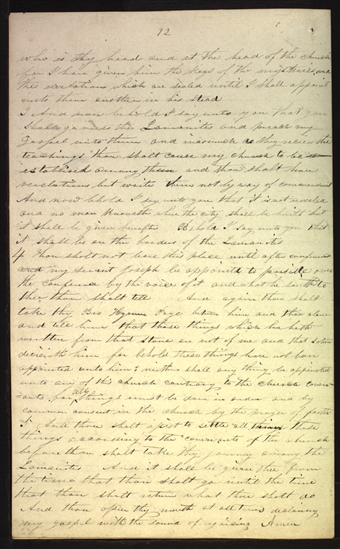 12
who is thy head and at the head of the church
for I have given him the keys of the mysteries and
the revelations which are sealed until I shall appoint
unto them another in his stead
3 And now behold I say unto you that you
shall go unto the Lamanites and preach my
Gospel unto them and inasmuch as they receive the
teachings thou shalt cause my church to be
established among them and thou shalt have
revelations but write them not by way of commandment
And now behold I say unto you that it is not revealed
and no man knoweth where the city shall be built but
it shall be given hereafter Behold I say unto you that
it shall be on the borders of the Lamanites
4 thou shalt not leave this place until after conference
and my servent Joseph be appointed to preside over
the conference by the voice of it and what he saith to
thee thou shalt tell And again thou shalt
take thy Bro Hyrum Page between him and thee alone
and tell him that these things which he hath
written from that stone are not of me and that satan
deceiveth him for behold these things have not been
appointed unto him neither shall any thing be appointed
unto any of this church contrary to the church cove
nants for all things must be done in order and by
common consent in the church by the prayer of faith
5 And thou shalt assist to settle all these
things according to the covenants of the church
before thou shalt take thy journey among the
Lamanites And it shall be given thee from
the time that thou shalt go until the time
that thou shalt return what thou shalt do
And thou must open thy mouth at all times declaring
my gospel with the sound of rejoicing Amen